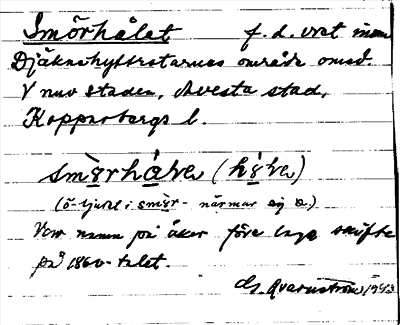 Smörhålet f. d. vret inom
Djäknehyttetarnas område omed.
V nuv staden, Avesta stad,
Kopparbergs l.
smörhålva (hölva)
(ö-ljudet i smör- närmar sig a.)
Var namn på åker före laga skifte
på 1860-talet.
G. Qvarnström 1943